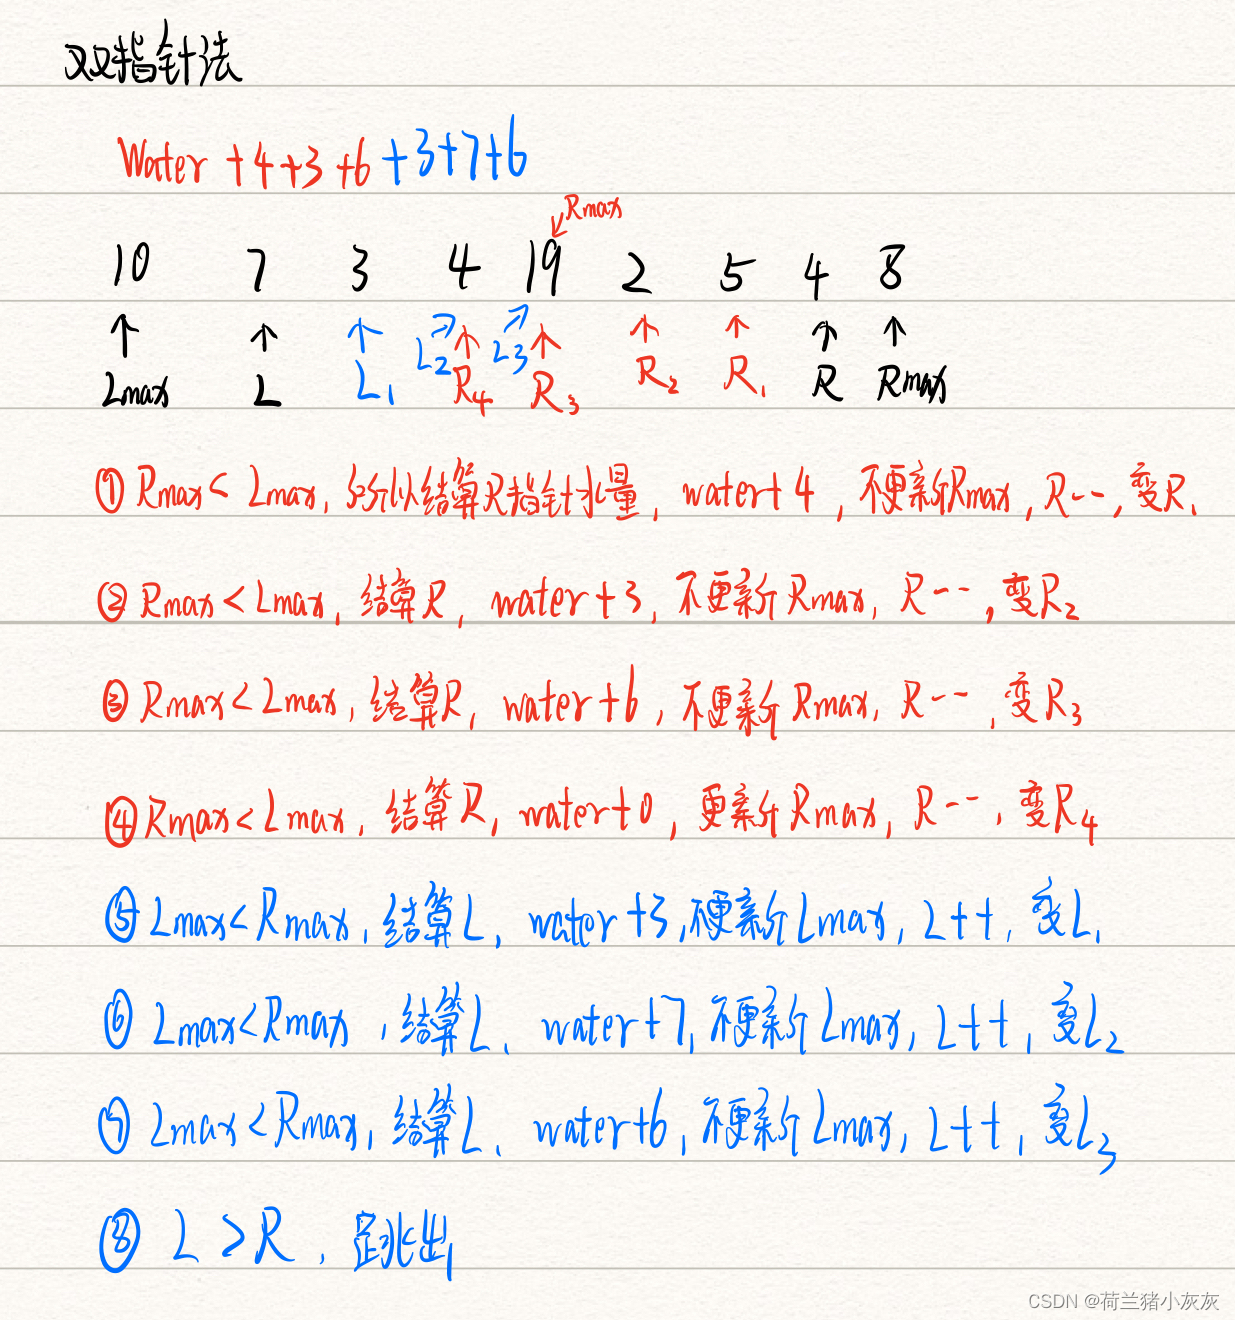 双指针法
Water +4+3+6+3+7+6
Rmax
10 7 3 4 19 2 5 4 8
Lmax L L1 L2 R4 L3 R3 R2 R1 R Rmax
① Rmax < Lmax, 所以结算R指针水量, water+4, 不更新Rmax, R--, 变R1
② Rmax < Lmax, 结算R, water+3, 不更新Rmax, R--, 变R2
③ Rmax < Lmax, 结算R, water+6, 不更新Rmax, R--, 变R3
④ Rmax < Lmax, 结算R, water+0, 更新Rmax, R--, 变R4
⑤ Lmax < Rmax, 结算L, water+3, 不更新Lmax, L++, 变L1
⑥ Lmax < Rmax, 结算L, water+7, 不更新Lmax, L++, 变L2
⑦ Lmax < Rmax, 结算L, water+6, 不更新Lmax, L++, 变L3
⑧ L > R, 跳出
CSDN @荷兰猪小灰灰